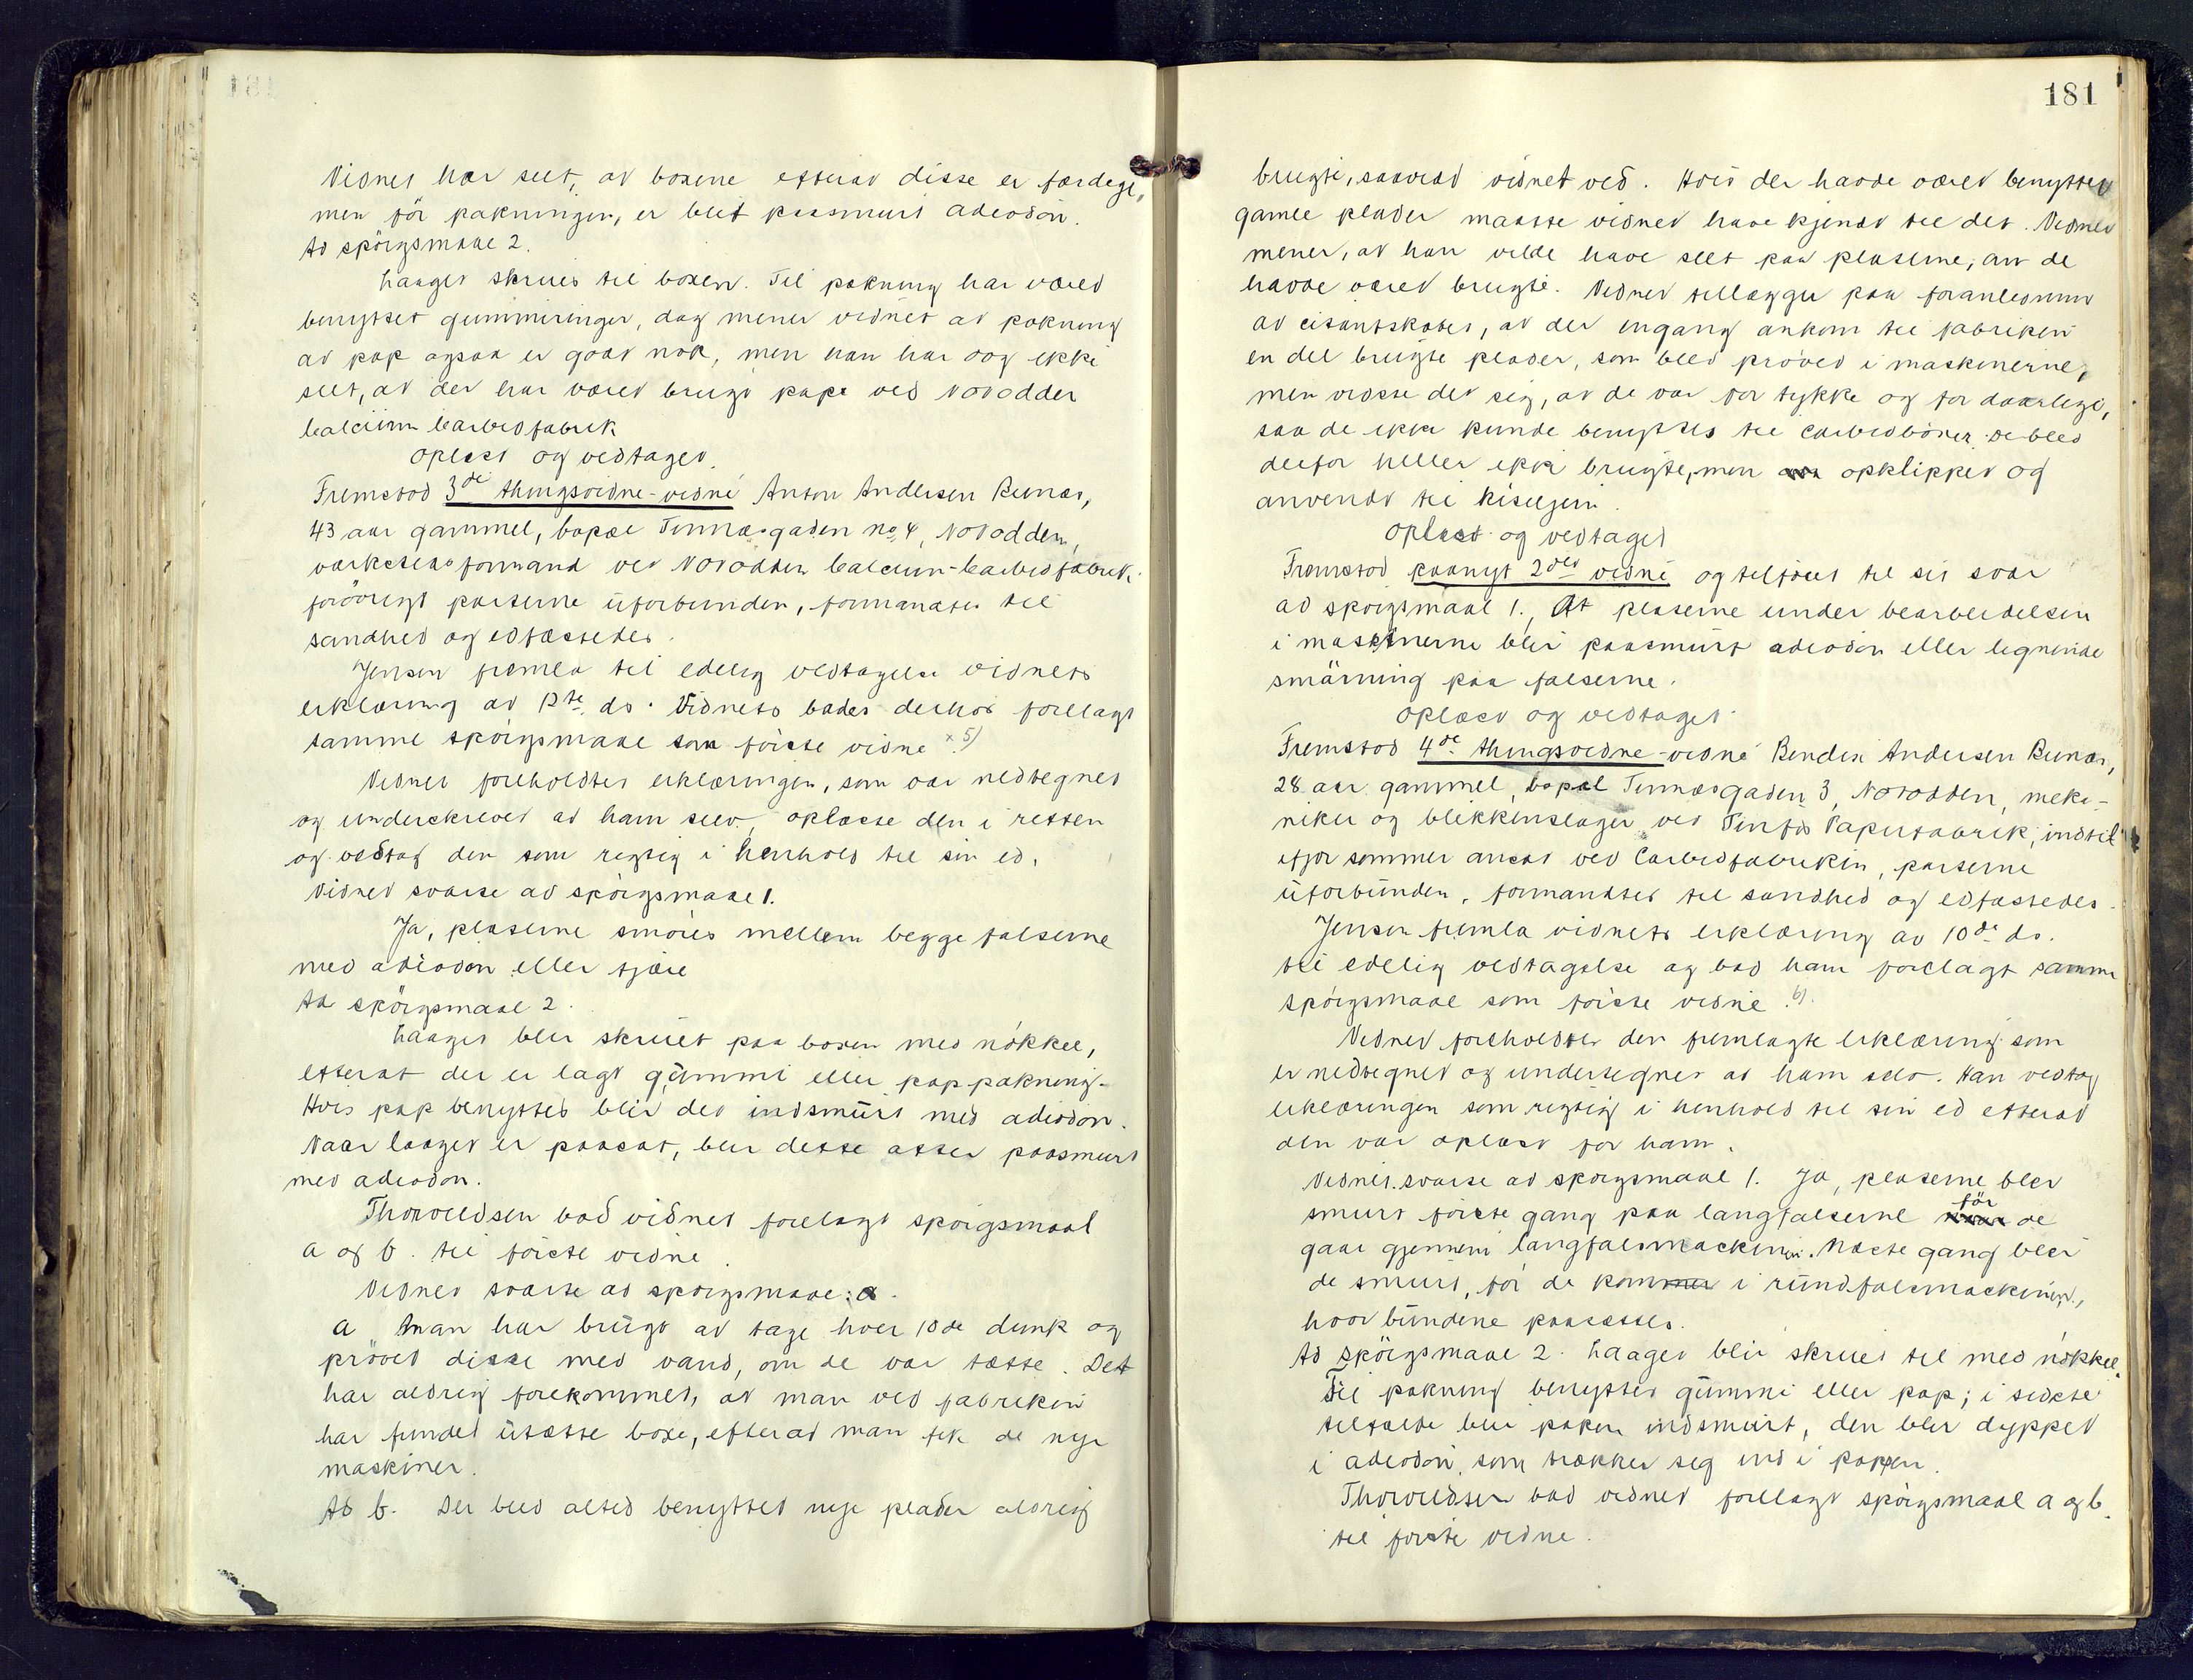 Vidnet har seet, at boxene efterat disse er færdige,
men før pakningen, er blet paasmurt adiodon.
Ad spörgsmaal 2.
Laaget skrues til boxen. Til pakning har været
benyttet gummiringer, dog mener vidnet at pakning
av pap ogsaa er godt nok, men han har dog ikke
seet, at der har været brugt pap ved Notodden
Calcium Carbidfabrik
Oplæst og vedtaget.
Fremstod 3de thingsvidne-vidne Anton Andersen Rinnes,
43 aar gammel, bopæl Tinnesgaden no 4, Notodden,
værkstedsformand ved Notodden Calcium-Carbidfabrik.
forövrigt parterne uforbunden, formanates til
sandhed og edfæstedes.
Jensen fremla til edelig vedtagelse vidnets
erklæring av 12te ds. Vidnets bades derhos forelagt
samme spörgsmaal som förste vidne x 5)
Vidnet foreholdtes erklæringen, som var nedtegnet
og underskrevet av ham selv, oplæste den i retten
og vedtog den som rigtig i henhold til sin ed.
Vidnet svarte ad spörgsmaal 1.
Ja, platerne smöres mellem begge falserne
med adiodon eller tjære
Ad spörgsmaal 2.
Laaget blir skruet paa boxen med nökkel,
efterat der er lagt gummi eller pappakning.
Hvis pap benyttes blir det indsmurt med adiodon.
Naar laaget er paasat, blir dette atter paasmurt
med adiodon.
Thorvaldsen bad vidnet forelagt spörgsmaal
a og b. til förste vidne.
Vidnet svarte ad spörgsmaal: a.
a. Man har brugt at tage hver 10de dunk og
prövet disse med vand, om de var tætte. Det
har aldrig forekommet, at man ved fabriken
har fundet utætte boxe, efterat man fik de nye
maskiner.
Ad b. Der blev altid benyttet nye plader aldrig
181
brugte, saavidt vidnet ved. Hvis der havde været benyttet
gamle plader maatte vidnet have kjendt til det. Vidnet
mener, at han vilde have seet paa platerne, om de
havde været brugte. Vidnet tillægger paa foranledning
av citantskabet, at der engang ankom til fabriken
en del brugte plader, som blev prövet i maskinerne,
men viste det sig, at de var for tykke og for daarlige,
saa de ikke kunde benyttes til carbidboxer. De blev
derfor heller ikke brugte, men opklippet og
anvendt til kiselgen.
Oplæst og vedtaget
Fremstod paanyt 2det vidne og tilföiet til sit svar
ad spörgsmaal 1., At platerne under bearbeidelsen
i maskinerne blir paasmurt adiodon eller lignende
smörning paa falserne.
Oplæst og vedtaget.
Fremstod 4de thingsvidne-vidne Bendix Andersen Rinnes,
28 aar gammel, bopæl Tinnesgaden 3, Notodden, meka-
niker og blikkenslager ved Tinfos Papirfabrik, indtil
ifjor sommer ansat ved Carbidfabriken, parterne
uforbunden, formanates til sandhed og edfæstedes.
Jensen fremla vidnets erklæring av 10de ds.
til edelig vedtagelse og bad ham forelagt samme
spörgsmaal som förste vidne. 6).
Vidnet foreholdtes den fremlagte erklæring som
er nedtegnet og undertegnet av ham selv. Han vedtog
erklæringen som rigtig i henhold til sin ed efterat
den var oplæst for ham.
Vidnet svarte ad spörgsmaal 1. Ja, platerne blir
smurt förste gang paa langfalserne för de
gaar gjennem langfalsmaskinen. Næste gang blir
de smurt, för de kommer i rundfalsmaskinen,
hvor bundene paasættes.
Ad spörgsmaal 2. Laaget blir skruet til med nökkel.
Til pakning benyttes gummi eller pap; i sidste
tilfælde blir papen indsmurt, den blir dyppet
i adiodon, som trækker seg ind i pappen.
Thorvaldsen bad vidnet forelagt spörgsmaal a og b.
til förste vidne.